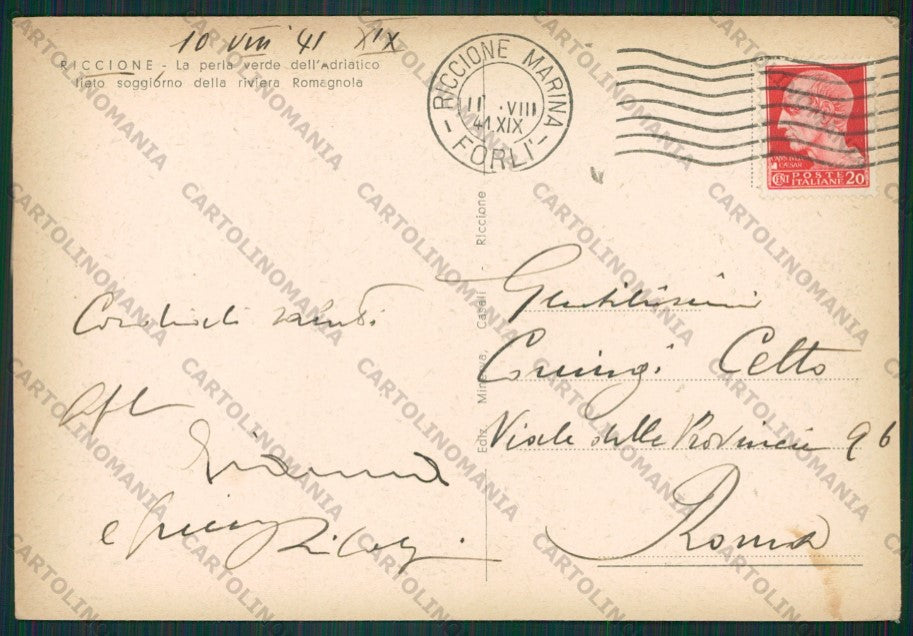 10 VIII 41 XIX
RICCIONE - La perla verde dell'Adriatico
lieto soggiorno della riviera Romagnola
RICCIONE MARINA
VIII
41.XIX
- FORLI' -
CAESAR
CENT POSTE ITALIANE 20
Ediz. Minerva, Casali - Riccione
Cordiali saluti
Gentilissimi
Coniugi Celto
Viale delle Provincie 96
Roma
Gianna
e
CARTOLINOMANIA